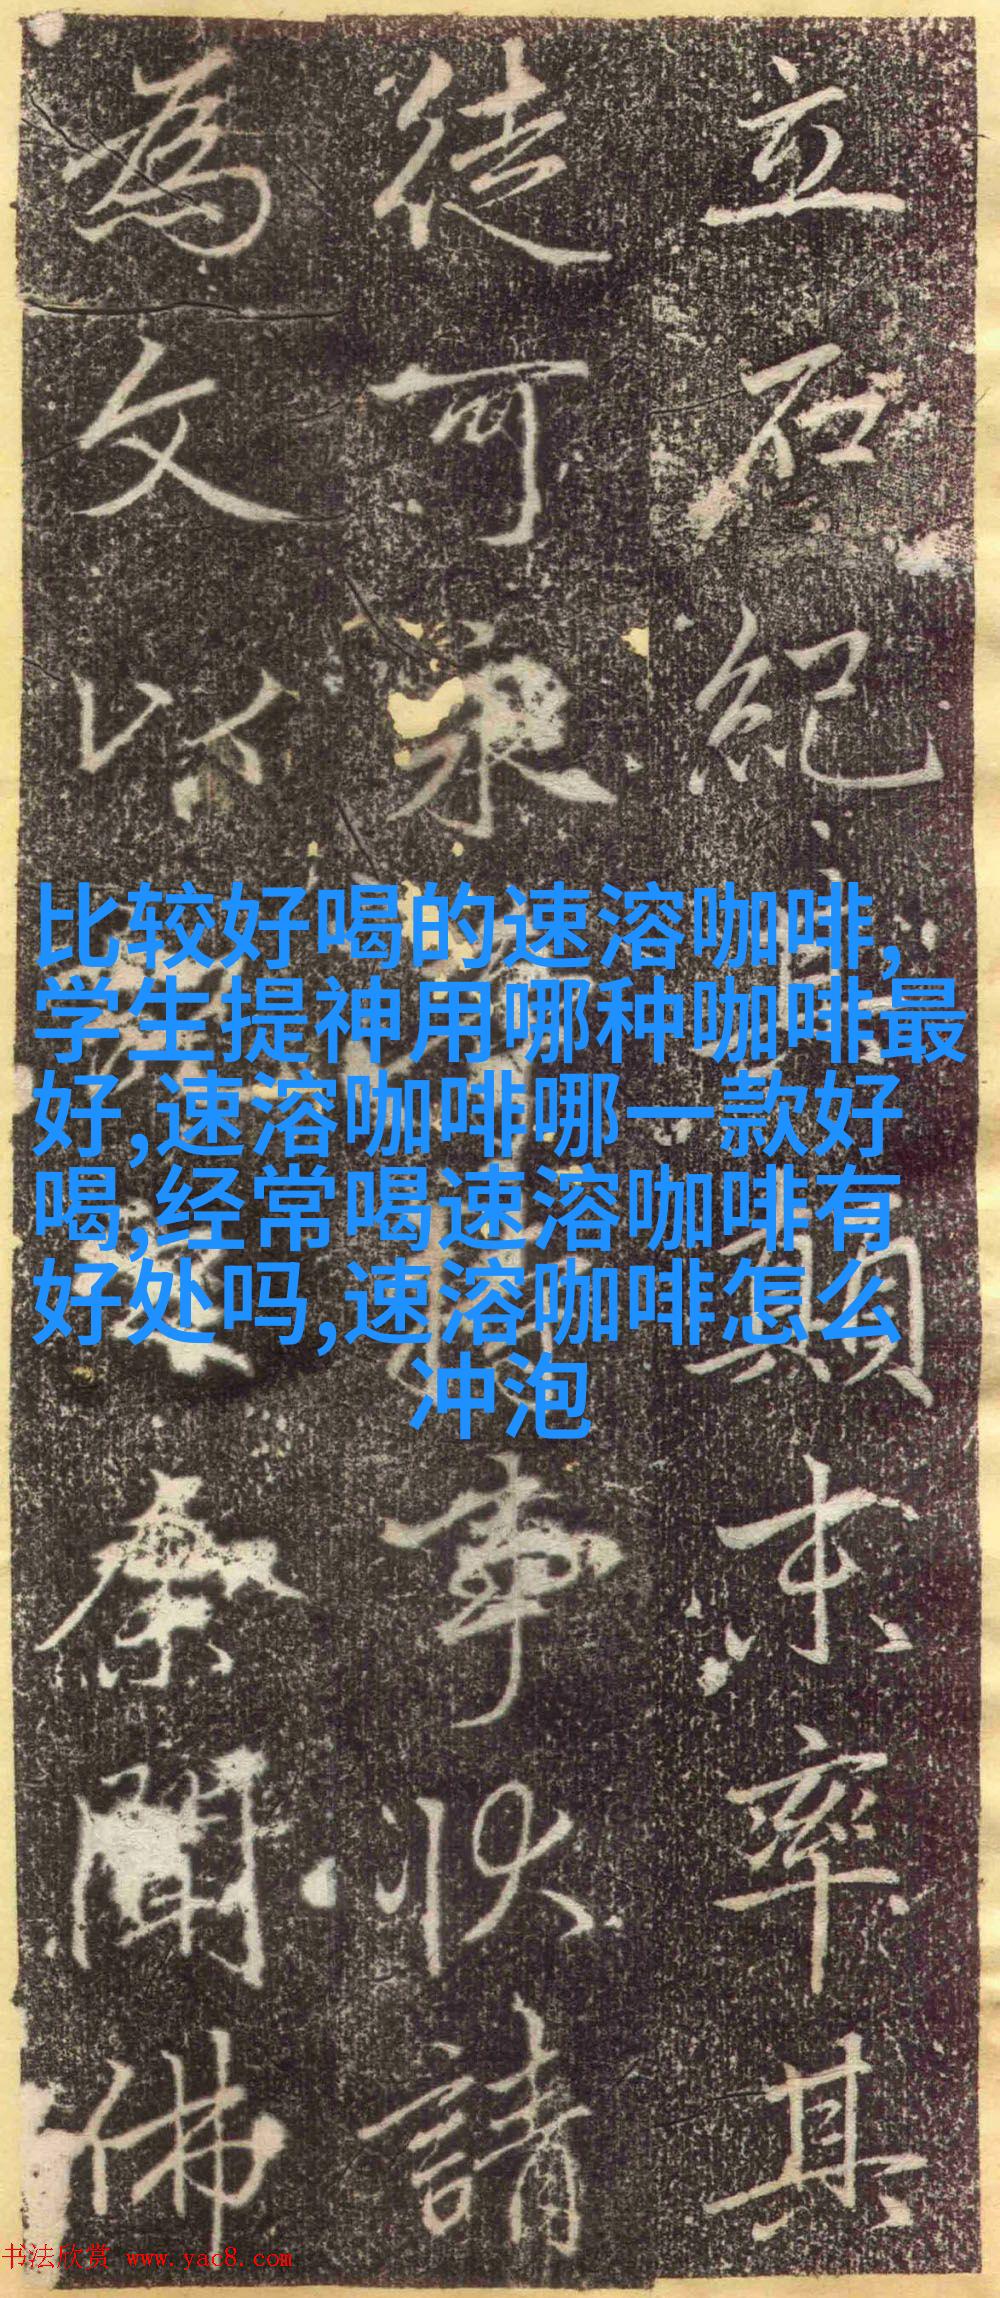 立石紀顛末率其
徒可事状請
為文以聞佛
比较好喝的速溶咖啡,
学生提神用哪种咖啡最
好,速溶咖啡哪一款好
喝,经常喝速溶咖啡有
好处吗,速溶咖啡怎么
冲泡
书法欣赏 www.yac8.com